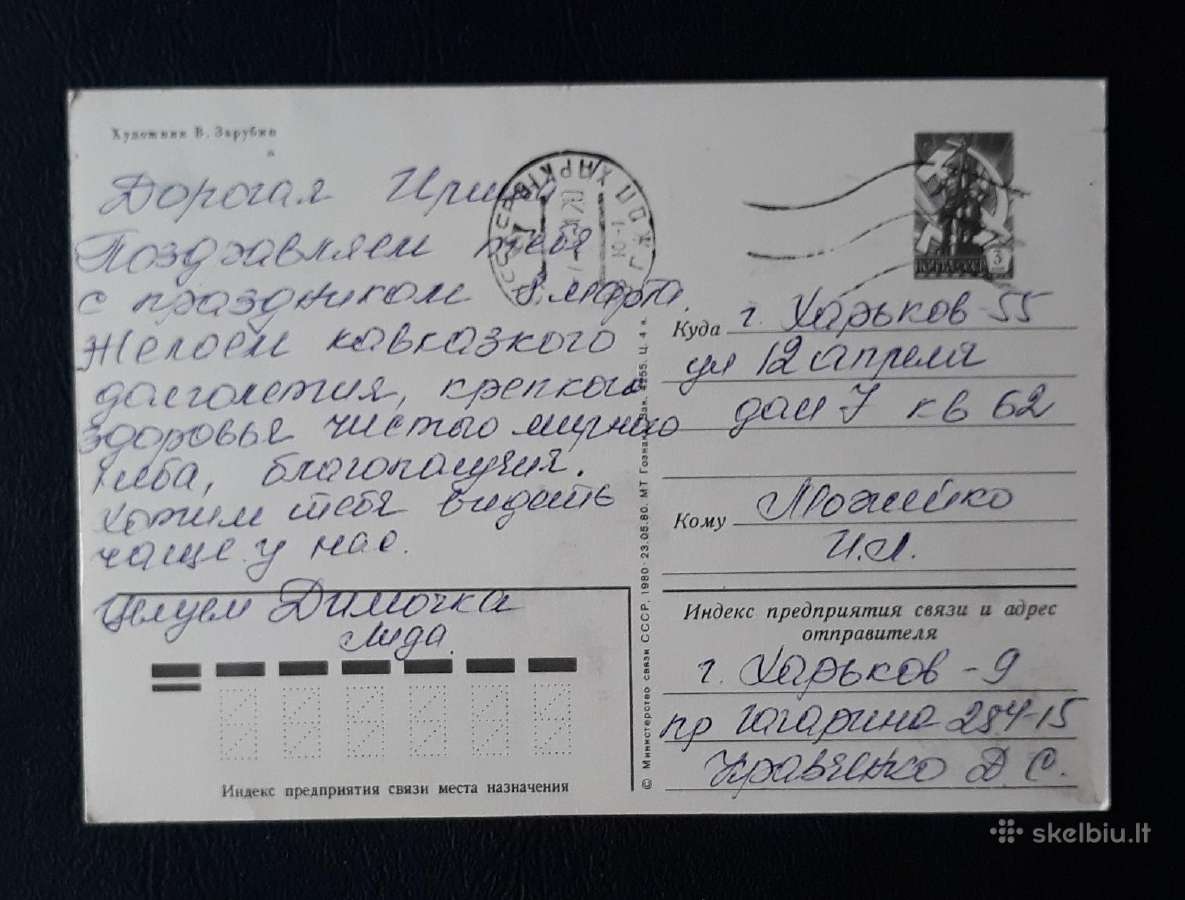 Художник В. Зарубин
Дорогая
Поздравляем тебя
с праздником 8 марта.
Желаем кавказкого
долголетия, крепкого
здоровья чистого мирного
неба, благополучия.
Хотим тебя видеть
чаще у нас.
Целуем Димочка
Лида.
Индекс предприятия связи места назначения
© Министерство связи СССР, 1980 · 23.05.80. МТ Гознака. 4 к.
Куда г. Харьков-55
ул 12 апреля
дом 7 кв 62
Кому Можейко
И.Л.
Индекс предприятия связи и адрес
отправителя
г. Харьков - 9
пр Гагарина 284-15
Кравченко Д С.
skelbiu.lt